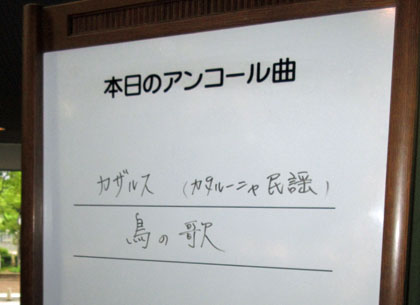 本日のアンコール曲
カザルス （カタルーニャ民謡）
鳥の歌